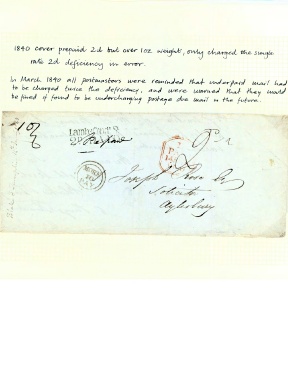 1840 cover prepaid 2d but over 1oz weight, only charged the single
rate 2d deficiency in error.
In March 1840 all postmasters were reminded that underpaid mail had
to be charged twice the deficiency, and were warned that they would
be fined if found to be undercharging postage due mail in the future.
Joseph Rose Esq
Solicitor
Aylesbury